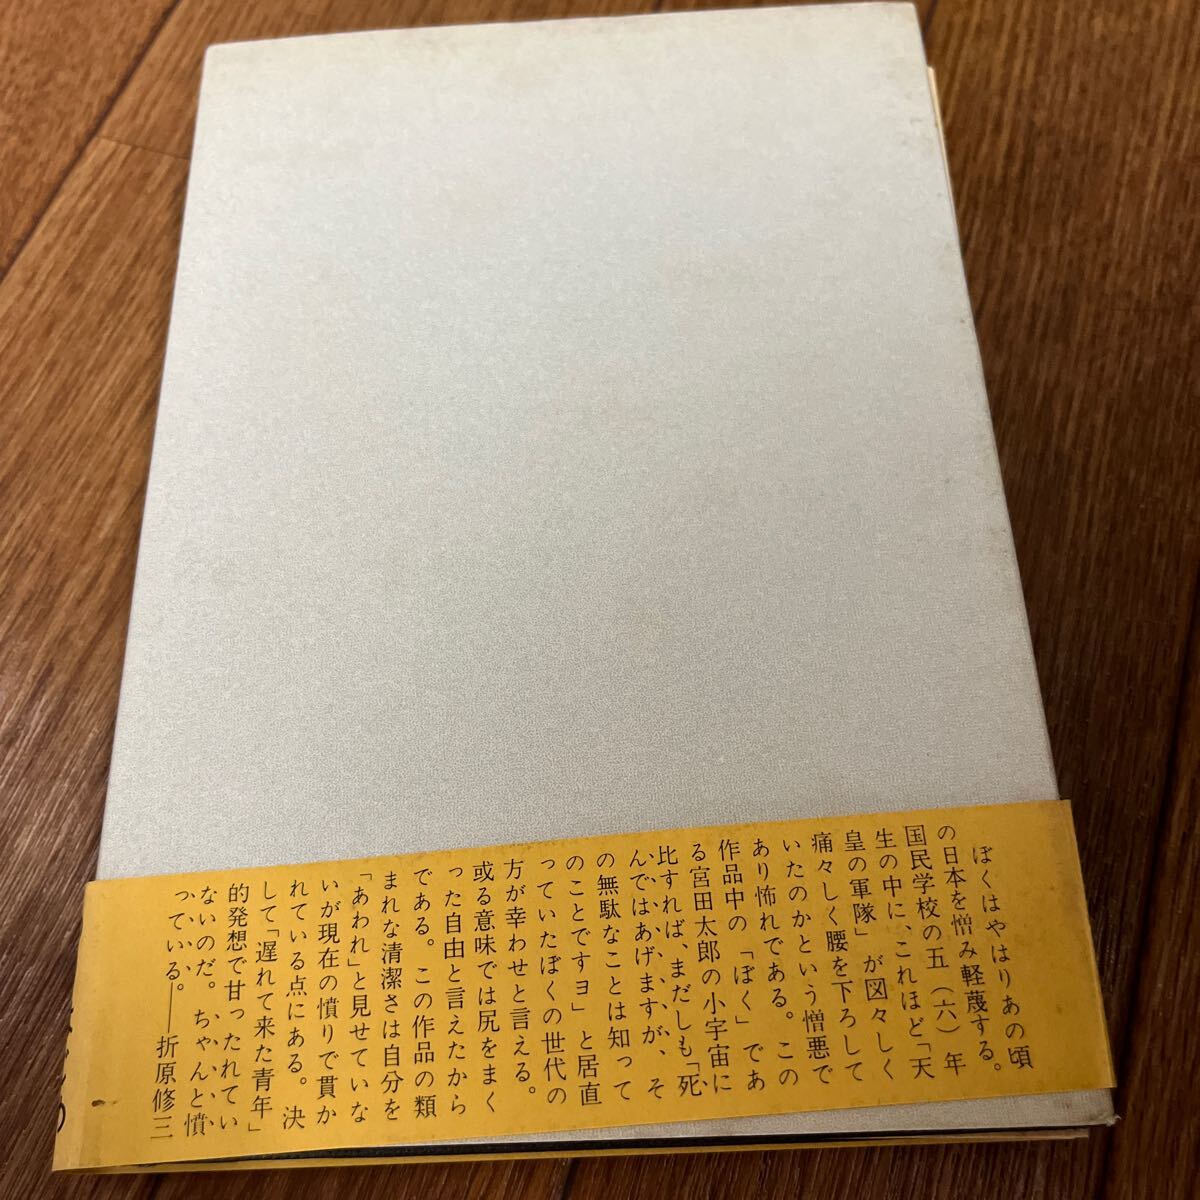 ぼくはやはりあの頃
の日本を憎み軽蔑する。
国民学校の五（六）年
生の中に、これほど「天
皇の軍隊」が図々しく
痛々しく腰を下ろして
いたのかという憎悪で
あり怖れである。この
作品中の「ぼく」であ
る宮田太郎の小宇宙に
比すれば、まだしも「死
んではあげますが、そ
の無駄なことは知って
のことですヨ」と居直
っていたぼくの世代の
方が幸わせと言える。
或る意味では尻をまく
った自由と言えたから
である。この作品の類
まれな清潔さは自分を
「あわれ」と見せていな
いが現在の憤りで貫か
れている点にある。決
して「遅れて来た青年」
的発想で甘ったれてい
ないのだ。ちゃんと憤
っている。──折原修三